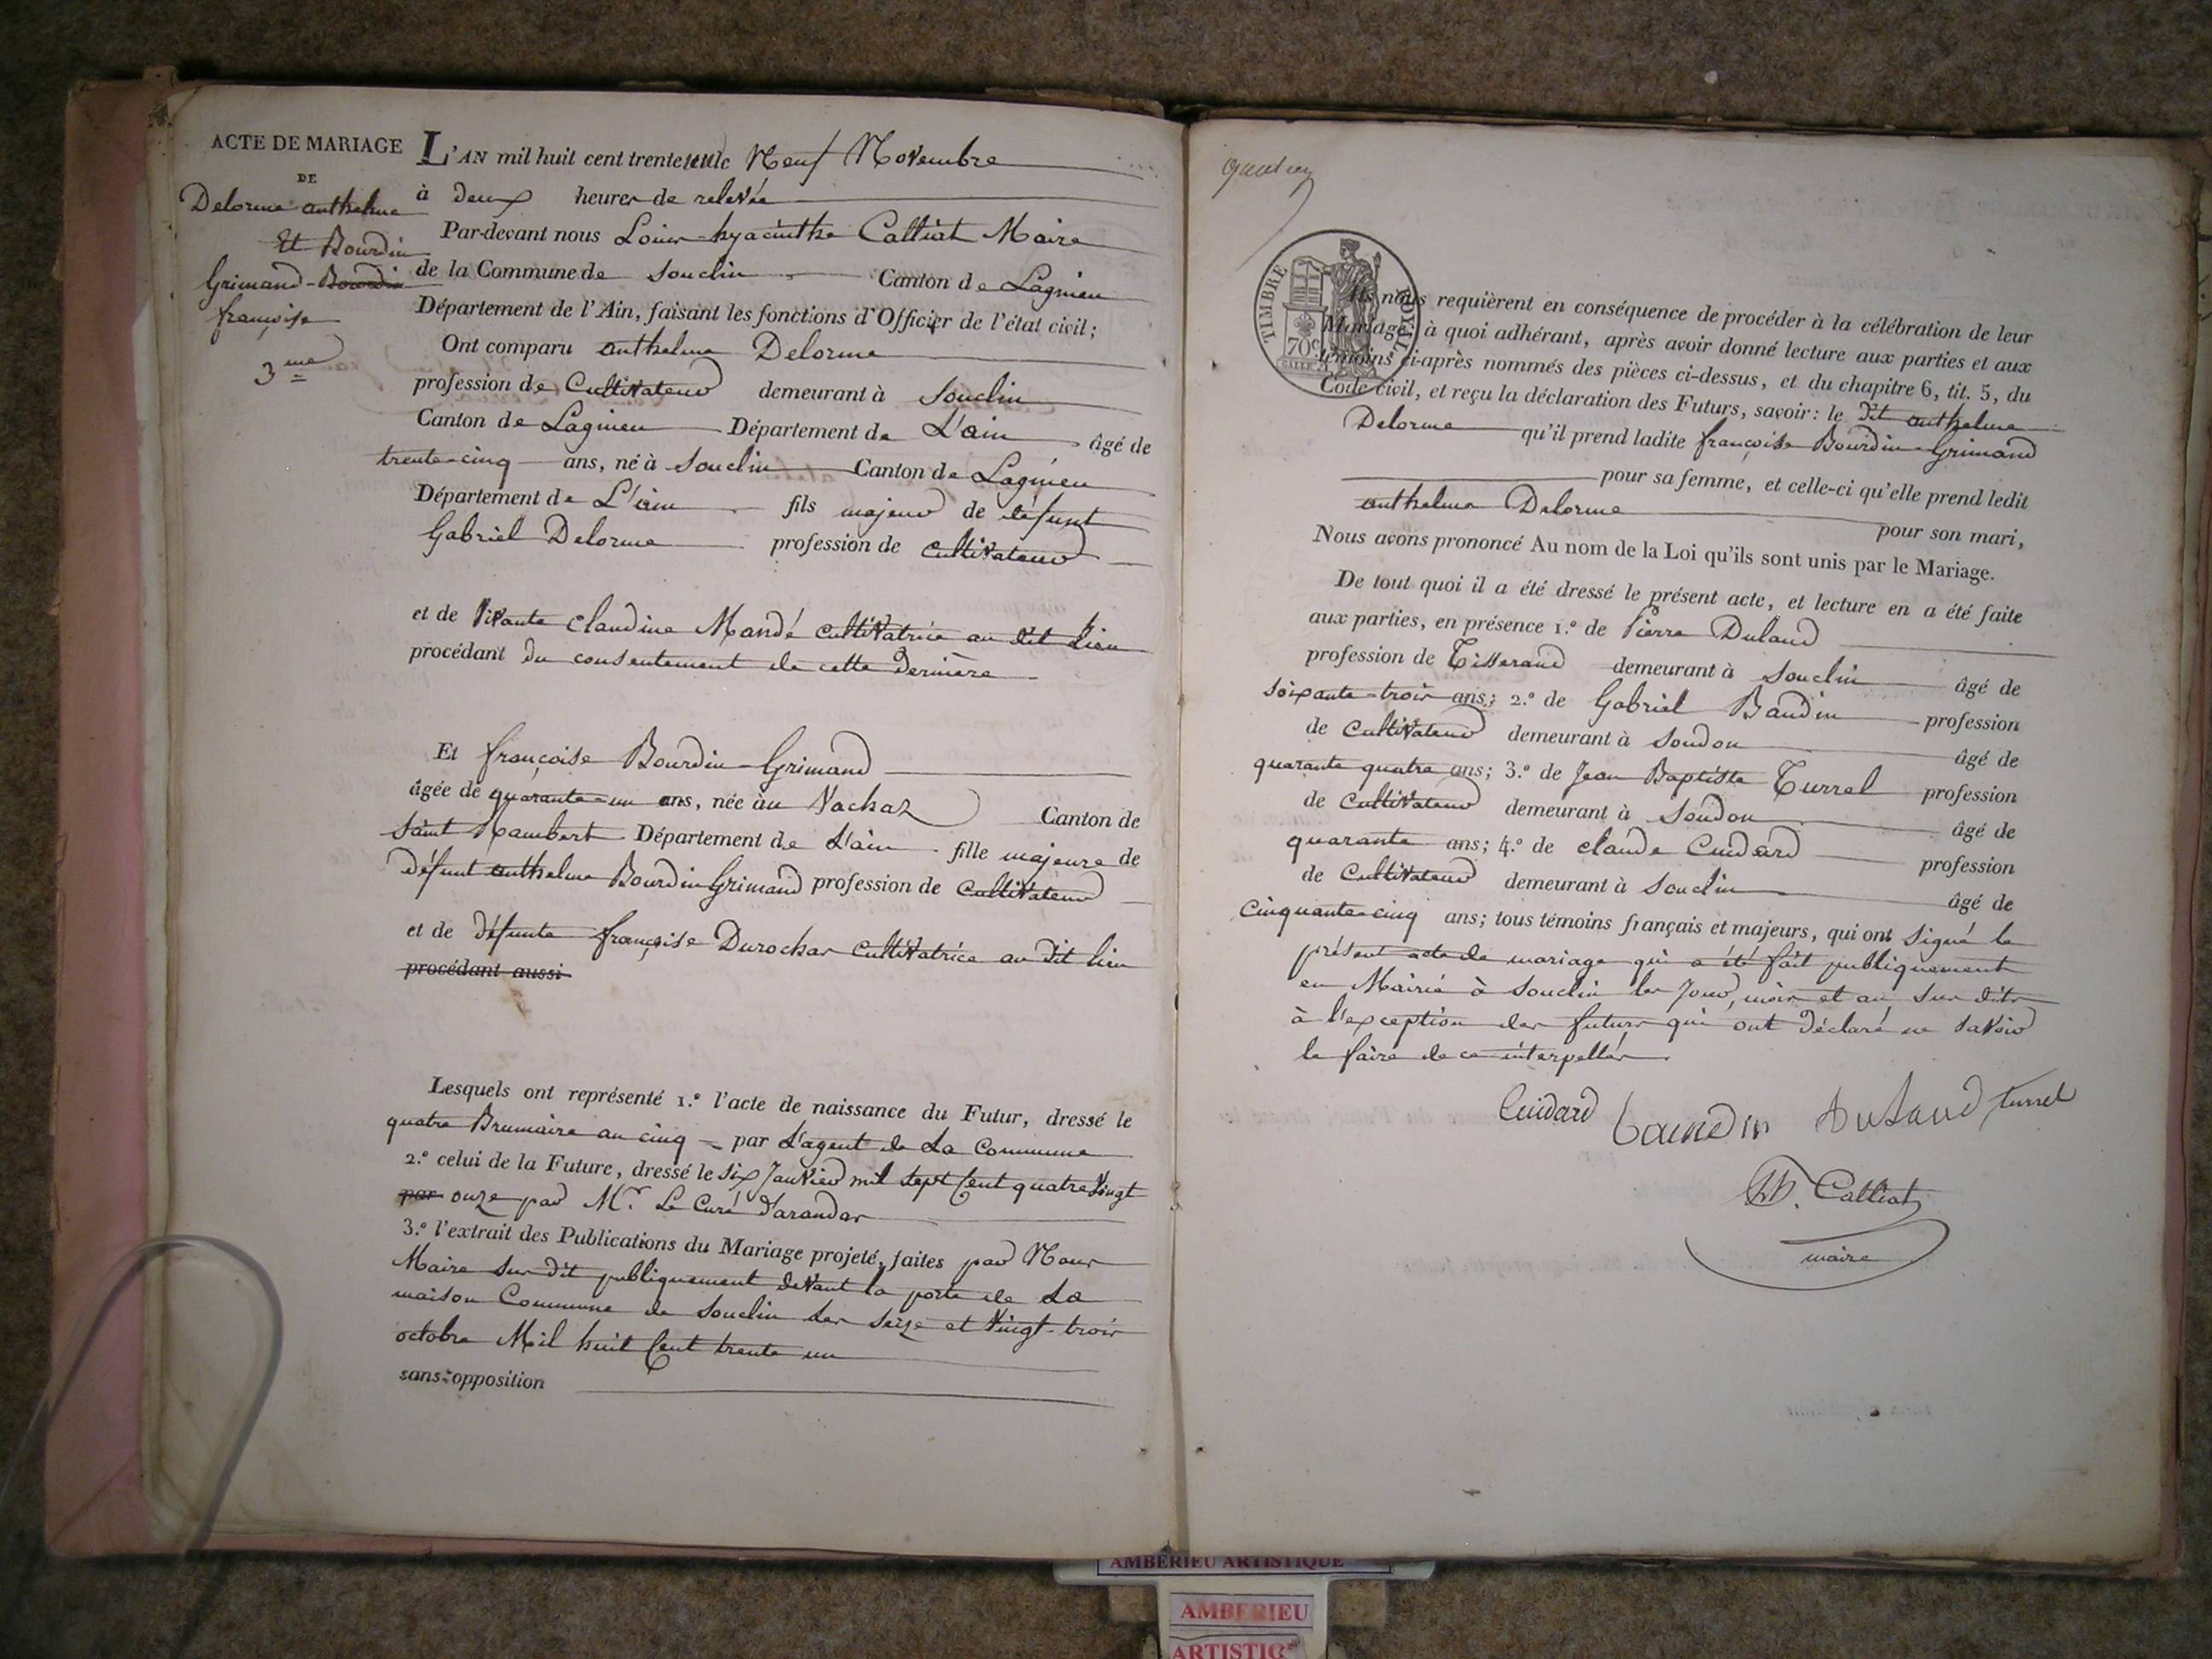 ACTE DE MARIAGE
DE
Delorme anthelme
Et Bourdin
Grimand-Bourdin
françoise
3me
L'AN mil huit cent trente un le Neuf Novembre
à deux heures de relevée
Par-devant nous Louis-hyacinthe Calliat Maire
de la Commune de Souclin Canton de Lagnieu
Département de l'Ain, faisant les fonctions d'Officier de l'état civil;
Ont comparu anthelme Delorme
profession de Cultivateur demeurant à Souclin
Canton de Lagnieu Département de L'ain âgé de
trente-cinq ans, né à Souclin Canton de Lagnieu
Département de L'ain fils majeur de défunt
Gabriel Delorme profession de cultivateur
et de Vivante Claudine Mandé cultivatrice au dit Lieu
procédant du consentement de cette dernière
Et françoise Bourdin-Grimand
âgée de quarante-un ans, née au Vachaz Canton de
Saint Rambert Département de L'ain fille majeure de
défunt anthelme Bourdin Grimand profession de Cultivateur
et de défunte françoise Durochar Cultivatrice au dit lieu
procédant aussi
Lesquels ont représenté 1.° l'acte de naissance du Futur, dressé le
quatre Brumaire an cinq par L'agent de La Commune
2.° celui de la Future, dressé le six Janvier mil sept Cent quatre Vingt
par onze par Mr. Le Curé d'arandas
3.° l'extrait des Publications du Mariage projeté, faites par Nous
Maire sus dit publiquement devant la porte de La
maison Commune de Souclin Les seize et Vingt-trois
octobre Mil huit Cent trente un
sans opposition
TIMBRE ROYAL
70c
Ils nous requièrent en conséquence de procéder à la célébration de leur
Mariage; à quoi adhérant, après avoir donné lecture aux parties et aux
témoins ci-après nommés des pièces ci-dessus, et du chapitre 6, tit. 5, du
Code civil, et reçu la déclaration des Futurs, savoir: le dit anthelme
Delorme qu'il prend ladite françoise Bourdin-Grimand
pour sa femme, et celle-ci qu'elle prend ledit
anthelme Delorme pour son mari,
Nous avons prononcé Au nom de la Loi qu'ils sont unis par le Mariage.
De tout quoi il a été dressé le présent acte, et lecture en a été faite
aux parties, en présence 1.° de Pierre Duland
profession de Tisserand demeurant à Souclin âgé de
soixante-trois ans; 2.° de Gabriel Baudin profession
de Cultivateur demeurant à Soudon âgé de
quarante quatre ans; 3.° de Jean Baptiste Turrel profession
de Cultivateur demeurant à Soudon âgé de
quarante ans; 4.° de Claude Cuidard profession
de Cultivateur demeurant à Souclin âgé de
Cinquante-cinq ans; tous témoins français et majeurs, qui ont Signé le
présent acte de mariage qui a été fait publiquement
en Mairie à Souclin les Jour, mois et an sus dits
à l'exception des futurs qui ont déclaré ne savoir
le faire de ce interpellés
Cuidard baudin duland turrel
Calliat
maire
AMBERIEU ARTISTIQUE
AMBERIEU